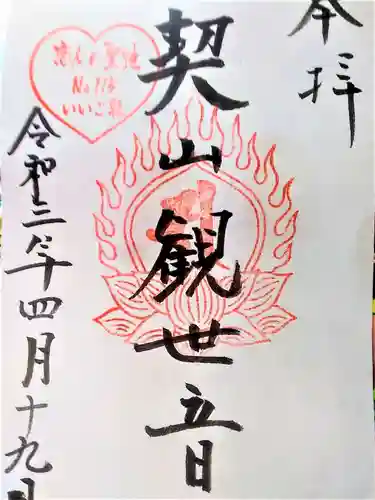 奉拝
契山観世音
恋人の聖地
No.113
いいご縁
令和三年四月十九日